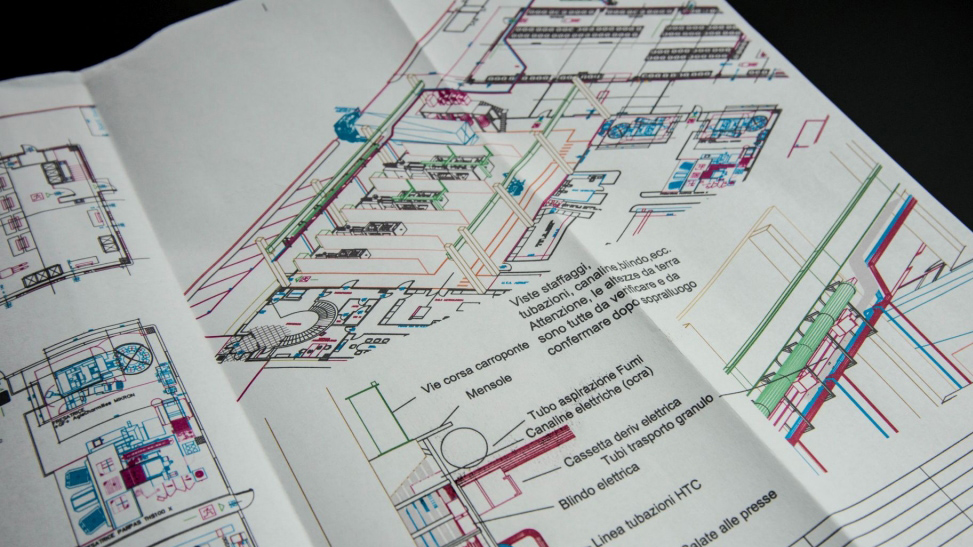 Viste staffaggi,
tubazioni, canaline,blindo,ecc.
Attenzione, le altezze da terra
sono tutte da verificare e da
confermare dopo sopralluogo
Vie corsa carroponte
Mensole
Tubo aspirazione Fumi
Canaline elettriche (ocra)
Cassetta deriv elettrica
Tubi trasporto granulo
Blindo elettrica
Linea tubazioni HTC
Calate alle presse